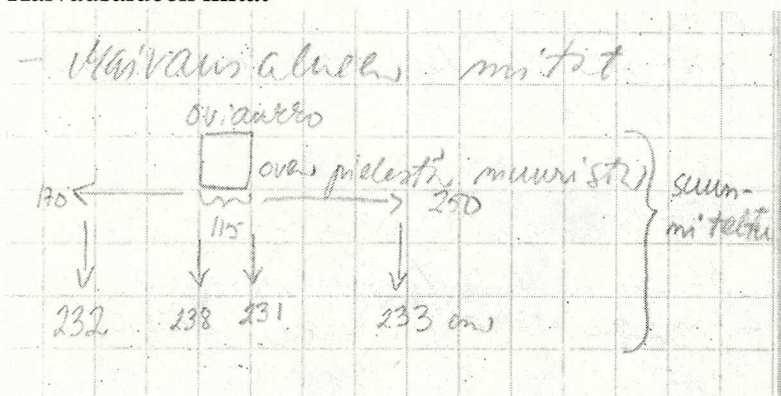 Kaivausalueen mitat
- Kaivausalueen mitat
oviaukko
oven pielestä muurista
170
250
suun-
niteltu
115
232 238 231 233 cm